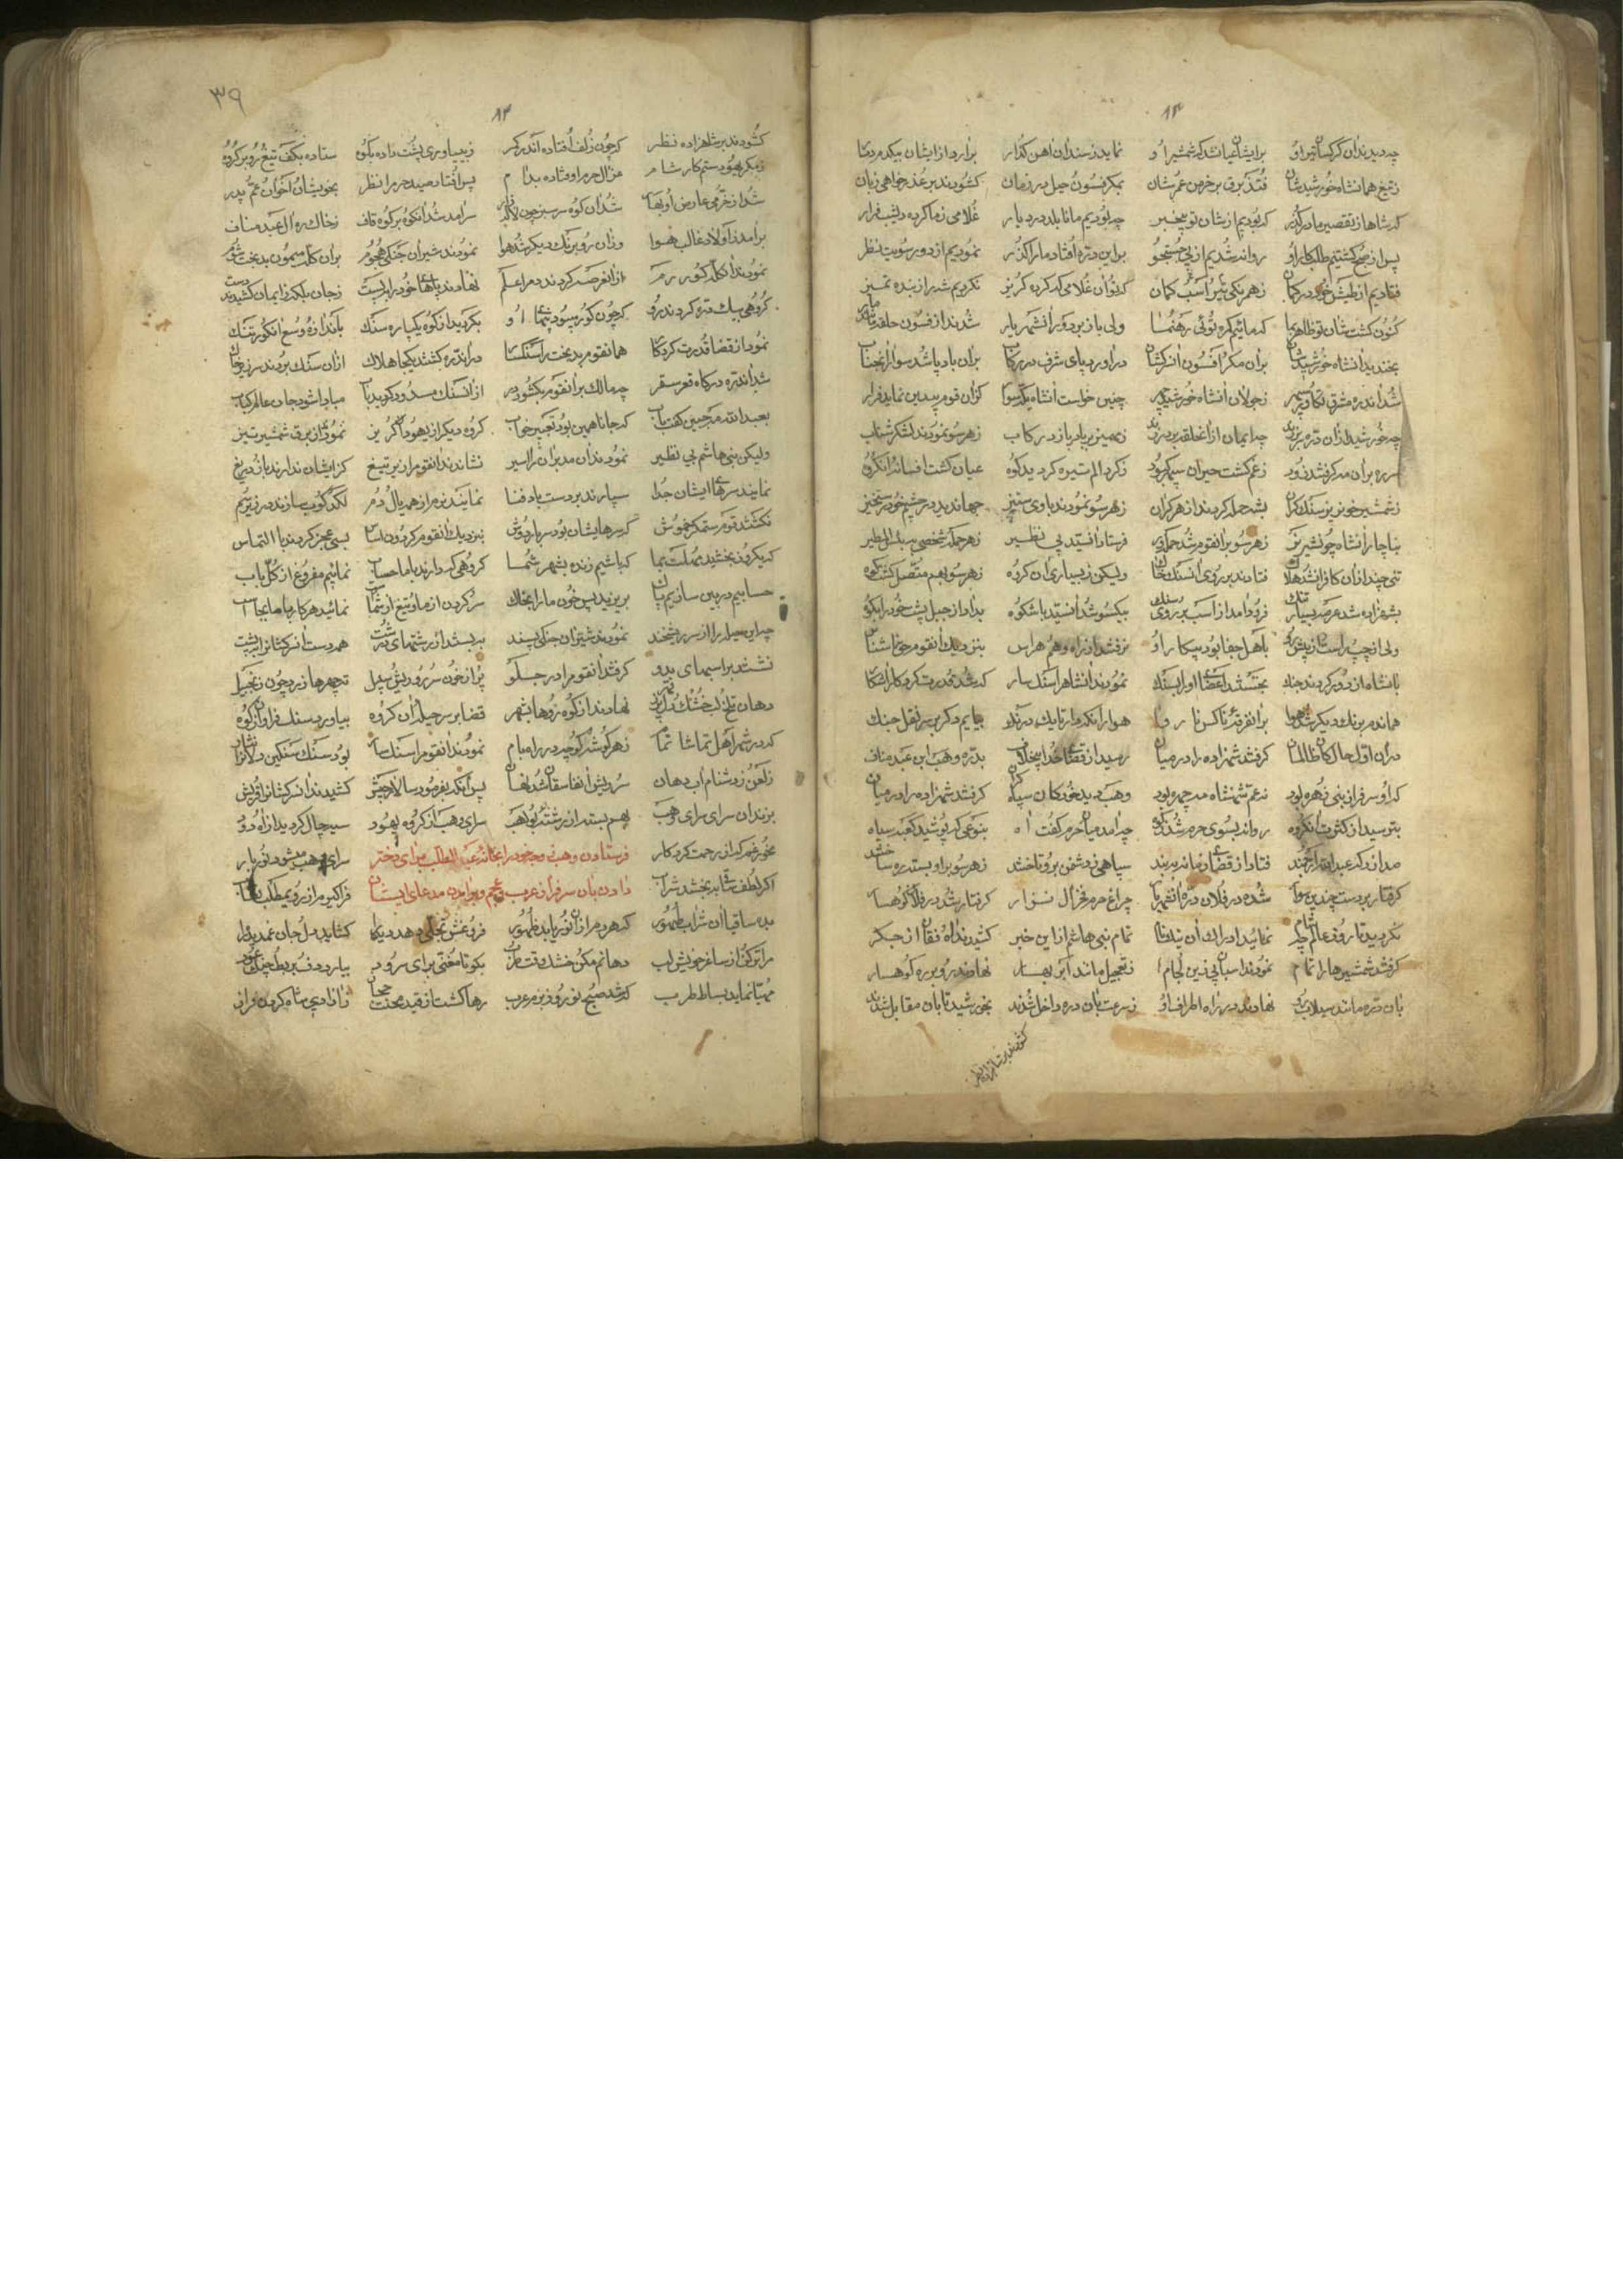 ۸۳
چه دیدند آن کرکسان تیر او برایشان عیان شد که شمشیر او نماید ز سندان آهن گذار برآرد از ایشان بیکدم دمار
ز تیغ همانشاه خورشید شان فتد برق بر خرمن عمرشان بمکر و فسون حیل در زمان کشودند بر عذر خواهی زبان
که شاها ز تقصیر ما در گذر که بودیم از شان تو بیخبر چه بودیم مانا بلد در دیار غلامی ز ما کرده دیشب فرار
پس از صبح گشتیم طلبکار او روانه شدیم از پی جستجو براین دره افتاد ما را گذر نمودیم از دور سویت نظر
فتادیم از طیش خود در گمان زهر یکی تیر اسب کمان که تو آن غلامی که کرده گریز نکردیم شه را ز بنده تمیز
کنون گشت شان تو ظاهر بما که مائیم گمره توئی رهنما ولی باز بر دور آنشهریار شدند از فسون حلقه مانند مار
بخندید آنشاه خورشید شان بران مکر افسون آن سرکشان درآورد پای شرف در رکاب بران باد پا شد سوار آنجناب
شد اندره مشرق نه سپهر ز جولان آنشاه خورشید چهر چنین خواست آنشاه یکه سوار کزان قوم بیدین نماید فرار
چه خورشید از آن دره بر زدند چه ایمان از آن حلقه بر در زدند زمهمیز بر باد پا زد رکاب زهر سو نمودند لشکر شتاب
سر ره بران مه گرفتند زود ز غم گشت حیران سپهر کبود ز گرد الم تیره گردید کوه عیان گشت افسانه آنگروه
ز شمشیر خونریز سنگ گران بشه حمله کردند از هر کران زهر سو نمودند با وی ستیز جهان دید در چشم خود رستخیز
بناچار آنشاه چو شیر نر زهر سو بر آنقوم شد حمله ور فرستاد آنسید بی نظیر زهر حمله شخصی به بئس المصیر
تنی چند از آن کافران شد هلاک فتادند بر روی آن سنگ خاک ولیکن ز بسیاری آن گروه زهر سو بهم متصل گشت کوه
بشهزاده شد عرصه بسیار تنگ فرود آمد از اسب بر روی سنگ بیکسو شد آنسید باشکوه بداد از جبل پشت خود را بکوه
ولی از چپ راست از پیش رو باهل جفا بود پیکار او نرفتند از راه وهم هراس بنزدیک آنقوم حق ناشناس
بانشاه از دور کردند جنگ بجستند اعضای او را بسنگ نمودند آنشاه را سنگسار که شد قدرت کردگار آشکار
هماندم برنگ دیگر شد هوا بران فرقه ناکس ناروا
دران اول حال کان ظالمان گرفتند شهزاده را در میان رسید از قضای خدا بیخلاف بدره وهب ابن عبد مناف
که او سرفراز بنی زهره بود ز عم شهنشاه مه چهره بود وهب دید خود کان سپاه گران گرفتند شهزاده را در میان
بترسید از کثرت آنگروه روانه بسوی حرم شد ز کوه چه آمد میان حرم گفت آه بنوعی که پوشید کعبه سیاه
صدا زد که عبدالله ارجمند فتاد از قضای زمانه ببند سپاهی ز دشمن بر او تاختند زهر سو بر او بسته ره ساختند
گرفتار بر دست چندین سوار شده در فلان دره آنشهریار چراغ حرم فخر آل نزار گرفتار شد در فلان کوهسار
نگردید تا روز عالم چه شام نمائید ادراک آن نیکنام تمام بنی هاشم از این خبر کشیدند آه و فغان از جگر
گرفتند شمشیرها را تمام نمودند اسبان پی زین لجام ز تعجیل مانند ابر بهار نهادند رو بره کوهسار
بان دره مانند سیلاب رو نهادند در راه اطراف او ز سرعت بان دره داخل شدند بخورشید تابان مقابل شدند
کشودند بر شاهزاده نظر
۳۹
۸۳
کشودند بر شاهزاده نظر که چون زلف افتاده اندر کمر ز بی یاوری پشت داده بکوه ستاده بکف تیغ رو بر گروه
ز مکر یهود ستم کار شام غزال حرم اوفتاده بدام پس افتاد صید حرم را نظر بخویشان اخوان عم پدر
شد از خرمی عارض او بهار شد آن کوه سرسبز چون لاله زار سرآمد شد آنکوه بر کوه قاف ز خاک ره آل عبد مناف
برآمد ز اولاد غالب هوا وزان رو برنگ دیگر شد هوا نمودند شیران جنگی هجوم بران کلب میمون بدبخت شوم
نمودند آن کله گور رم از آنعرصه کردند دم را علم نهادند پاهای خود را ببست ز جان بلکه ز ایمان کشیدند دست
گروهی بیک دره کردند رو که چون گور بی سود شمای او بگردید از کوه یکپاره سنگ باندازه وسع آنکور تنگ
نمود از قضا قدرت کردگار همانقوم بدبخت را سنگسار در اندره کشتند یکجا هلاک ازان سنگ بردند سر زیر خاک
شد اندره درگاه قعر سقر چه مالک بر آنقوم بکشود در از آنسنگ مسدود گردید باب مبادا شود جان عالم کباب
بعبدالله مه جبین گفت باب که جانا همین بود تعبیر خواب گروه دیگر از یهود آن گریز نمودند از برق شمشیر تیز
ولیکن بنی هاشم بی نظیر نمودند آن مدبران را اسیر نشاندند آنقوم را زیر تیغ کز ایشان ندارند بازو دریغ
نمایند سرهای ایشان جدا سپارند بر دست باد فنا نمایند نرم از همه یال و دم لگد کوب سازند در زیر سم
نگشتند قوم ستمگر خموش که سرهایشان بود سربار دوش بنزدیک آنقوم گردون اساس بسی عجز کردند با التماس
که یکروز بخشید مهلت بما که باشیم زنده بشهر شما گروهی که دارند با ما حساب نمائیم مفروغ از کل باب
حسابیم در بین سازیم پاک بریزید پس خون ما را بخاک سر گردن از ما و تیغ از شما نمائید هر کار با ما بجا
چه این حیله را از سر ریشخند نمودند شیران جنگی پسند ببستند از رشتهای درشت همه دست آن سرکشان را بپشت
نشستند بر اسبهای بدو گرفتند آنقوم را در جلو پر از خون سر رو و ریش سبیل
دهان تلخ لب خشک و رخ نهادند از کوه رو ها بشهر قضا بر سر حیله آن گروه بیاورد سنگ فراوان ز کوه
که در شهر اهل تماشا تمام زهر گوشه کوچه در راه بام نمودند آنقوم را سنگسار بود سنگ سنگین
ز لعن ز دشنام آب دهان پس آنکه بفرمود سالار جیش کشیدند آن سرکشان را قریش
بزندان سرای سرای وهب بهم بسته از رشته بولهب سرای وهب از گروه یهود سیه چال گردید از آه دود
مخور غم که از رحمت کردگار فرستادن وهب زوجه خود را بخانه عبد المطلب برای دختر سرای وهب میشود نوربار
اگر لطف ساقی ببخشد شراب دادن بان سرفراز عرب و عجم و برآمدن مدعای ایشان
بده ساقیا آن شراب طهور که هر دم از آن نور یابد ظهور فروغش تجلی دهد دیگر گشاید دل جان
مرا تر کن از ساغر خویش لب دهانم مکن خشک وقت طرب بگو تا مغنی برای سرود بیارد دف بربط چنگ عود
مهیا نماید بساط طرب که شد صبح نوروز بزم عرب رها گشت از قید محنت